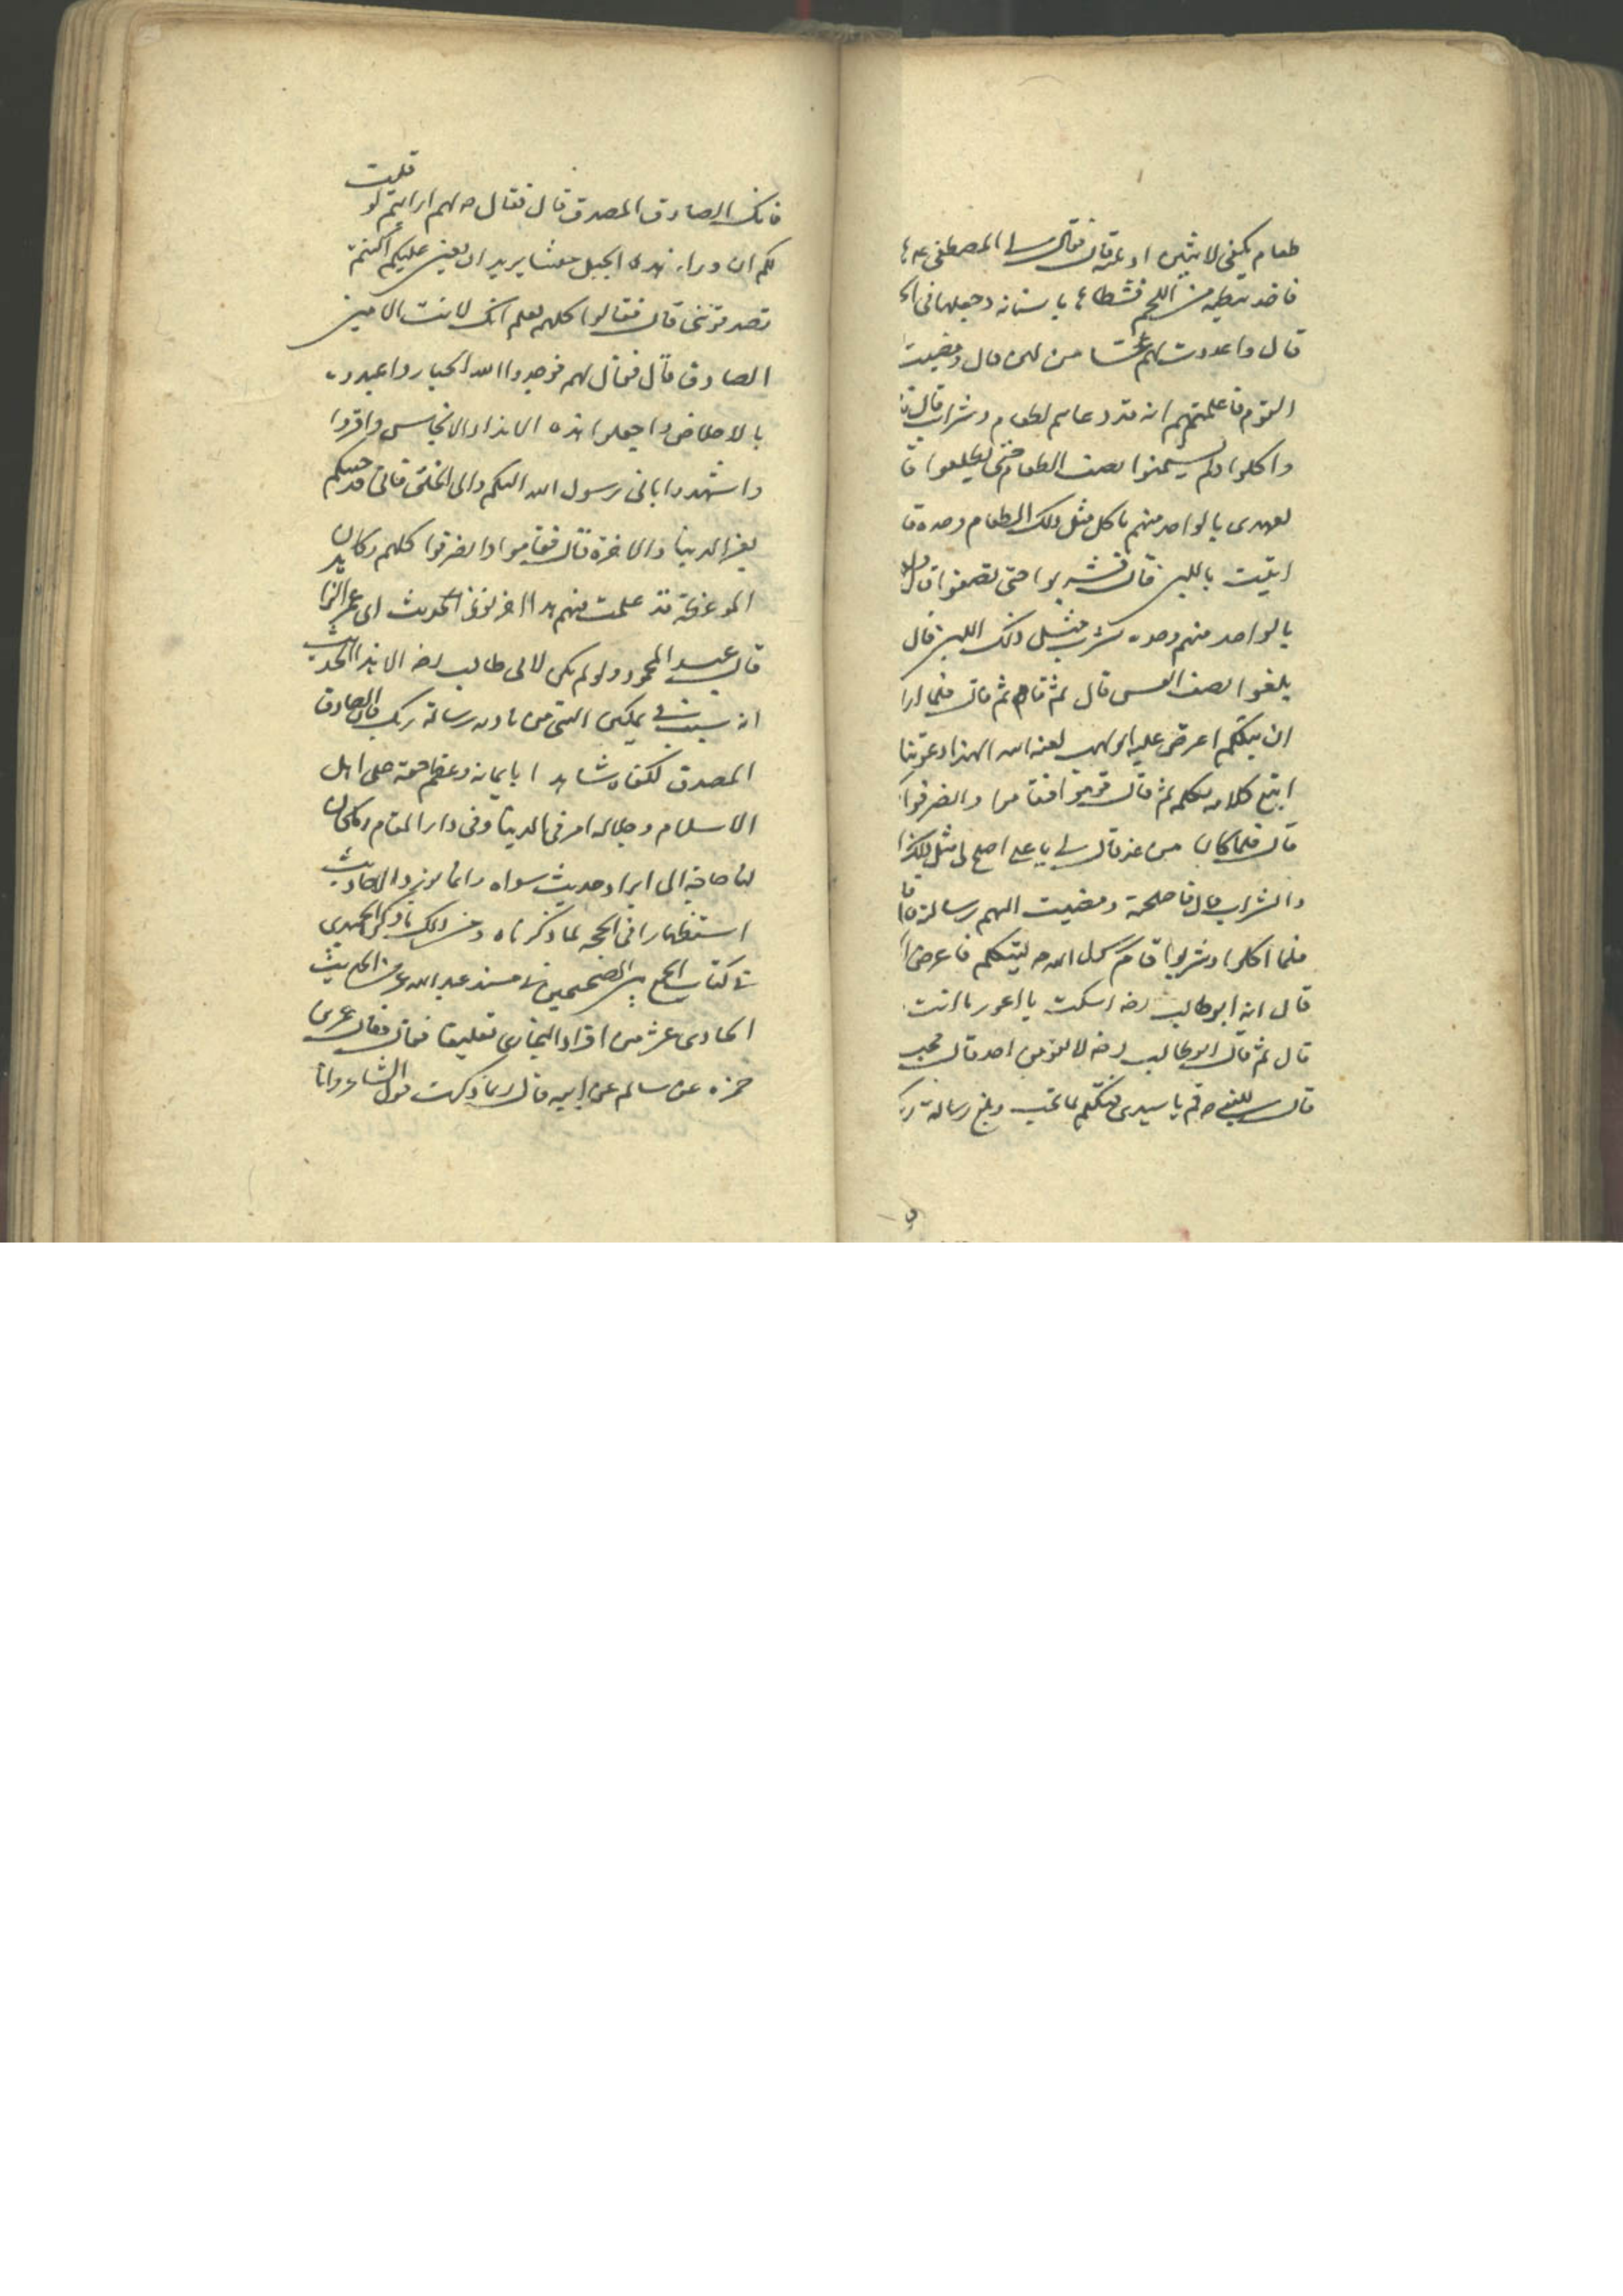 طعام يكفى لاثنين او ثلثة قال فقال لى المصطفى
فاخذ قطعة من اللحم فشطاها باسنانه وجعلها فى
قال واعددت لهم عسا من لبن قال ومضيت
القوم فاعلمتهم انه قد دعاهم لطعام وشراب قال
واكلوا ولم يستموا نصف الطعام حتى تضلعوا
لعهدى بالواحد منهم ياكل مثل ذلك الطعام وحده
اتيت باللبن قال فشربوا حتى تضلعوا قال
بالواحد منهم وحده يشرب مثل ذلك اللبن قال
بلغوا نصف العس قال ثم قام ثم قال فلما ارا
ان يتكلم اعترض عليه ابو لهب لعنه الله الهذا دعوتنا
اتبع كلامه بكلمه ثم قال قوموا فقاموا وانصرفوا
قال فلما كان من غد قال لى يا على اصلح لى مثل ذلك
والشراب قال فاصلحته ومضيت اليهم برسالته
فلما اكلوا وشربوا قام رسول الله ص ليتكلم فاعترض
قال له ابو طالب رضه اسكت يا اعور ما انت
قال ثم قال ابو طالب رضه لا يقومن احد قال
قال للنبى ص قم يا سيدى فتكلم بما تحب وبلغ رسالة ر
فانك الصادق المصدق قال فقال ص لهم ارايتم لو قلت
لكم ان وراء هذا الجبل جيشا يريد ان يغير عليكم اكنتم
تصدقوننى قال فقالوا كلهم نعلم انك لانت الامين
الصادق قال فقال لهم فوحدوا الله الجبار واعبدوه
بالاخلاص واجعلوا هذه الانداد الانجاس واقروا
واشهدوا بانى رسول الله اليكم والى الخلق فانى قد جئتكم
بعز الدنيا والاخرة قال فقاموا وانصرفوا كلهم وكان
الموعظة قد علمت فيهم هذا اخر لفظ الحديث
قال عبد المحمود ولو لم يكن لابى طالب رضه الا هذا الحديث
انه سبب فى تمكين النبى من تادية رسالة ربك
المصدق لكفاه شاهدا بايمانه وعظم حقه على اهل
الاسلام وجلالة امره فى الدنيا وفى دار المقام وما كان
لنا حاجة الى ايراد حديث سواه وانما نورد الاحاديث
استظهارا فى الحجة لما ذكرناه ومن ذلك ما ذكره الحميدى
فى كتاب الجمع بين الصحيحين فى مسند عبد الله بن عمر فى الحديث
الحادى عشر من افراد البخارى تعليقا قال وقال عمر بن
حمزه عن سالم عن ابيه قال ربما ذكرت قول الشاعر وانا